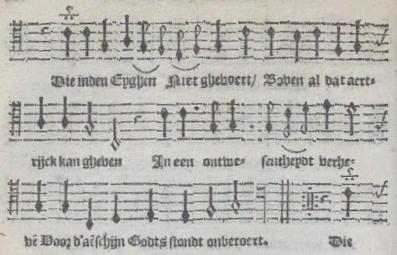 Die inden Eyghen Niet ghevoert/ Boven al dat aert-
rijck kan gheven In een ontwe- sentheydt verhe-
vē Voor d'aēschijn Godts stondt onberoert. Die